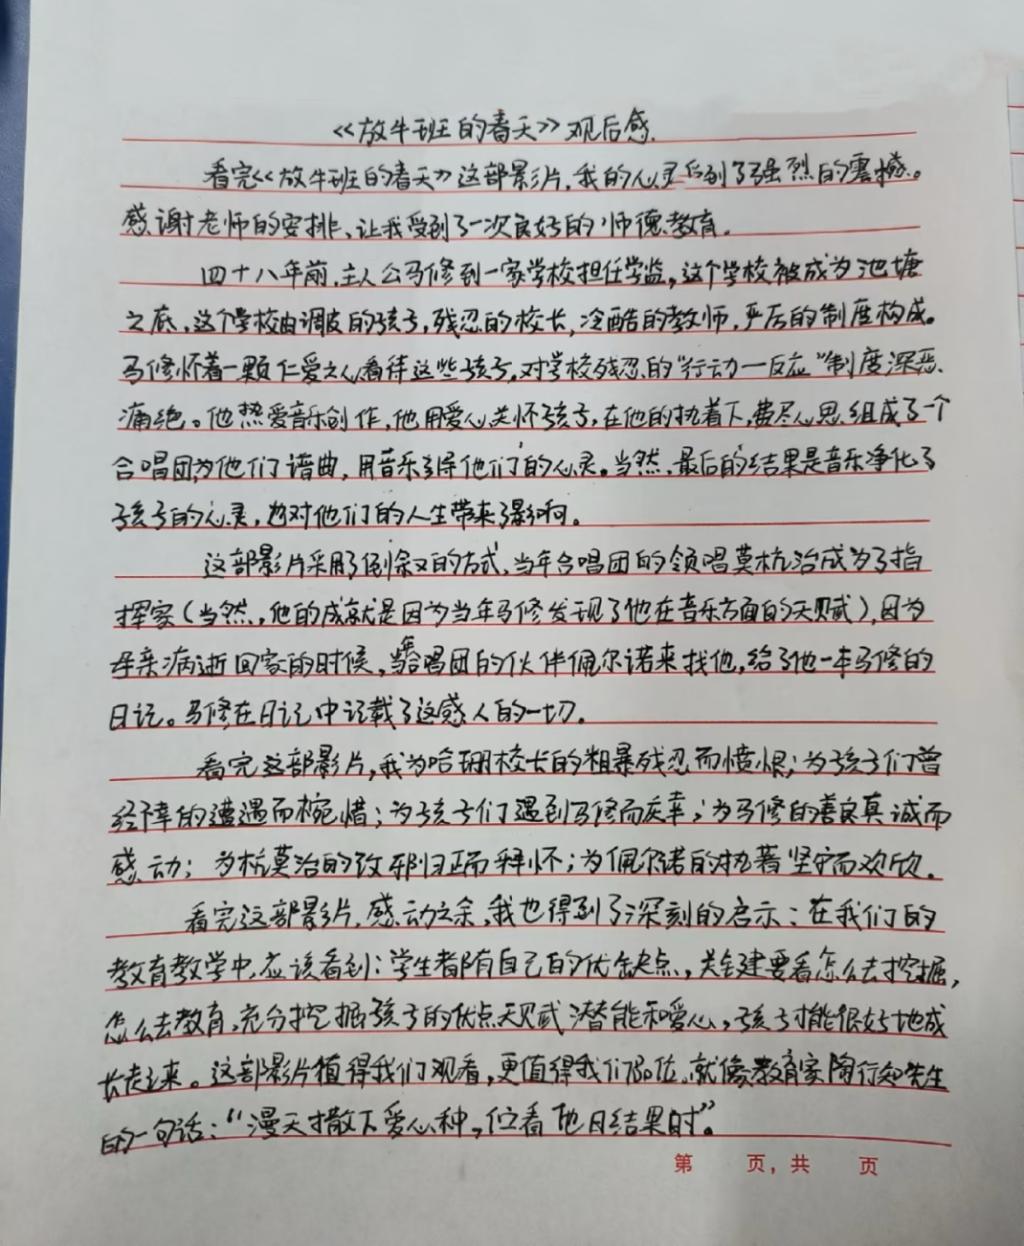 《放牛班的春天》观后感.
看完《放牛班的春天》这部影片,我的心灵后到了强烈的震撼。
感谢老师的安排、让我受到了一次良好的师德教育.
四十八年前,主人公马修到一家学校担任学监,这个学校被成为池塘
之底,这个学校由调皮的孩子,残忍的校长,冷酷的教师,严厉的制度构成。
马修怀着一颗仁爱之心看待这些孩子,对学校残忍的"行动一反应"制度深恶
痛绝。他热爱音乐创作,他用爱心关怀孩子,在他的执着下,费尽心思组成了一个
合唱团,为他们谱曲,用音乐引导他们的心灵。当然,最后的结果是音乐净化了
孩子的心灵,也对他们的人生带来了影响。
这部影片采用了倒叙的方式,当年合唱团的领唱莫杭治成为了指
挥家(当然,他的成就是因为当年马修发现了他在音乐方面的天赋),因为
母亲病逝回家的时候,当年合唱团的伙伴佩尔诺来找他,给了他一本马修的
日记。马修在日记中记载了这感人的一切.
看完这部影片,我为哈珊校长的粗暴残忍而愤恨;为孩子们曾
经的遭遇而惋惜;为孩子们遇到马修而庆幸;为马修的善良真诚而
感动;为杭莫治的改邪归正而释怀;为佩尔诺的执著坚守而欢欣.
看完这部影片,感动之余,我也得到了深刻的启示:在我们的
教育教学中,应该看到:学生都有自己的优缺点,关键要看怎么去挖掘,
怎么去教育,充分挖掘孩子的优点天赋潜能和爱心,孩子才能很好地成
长起来。这部影片值得我们观看,更值得我们品位,就像教育家陶行知先生
的一句话:"漫天撒下爱心种,位看他日结果时"。
第 页,共 页